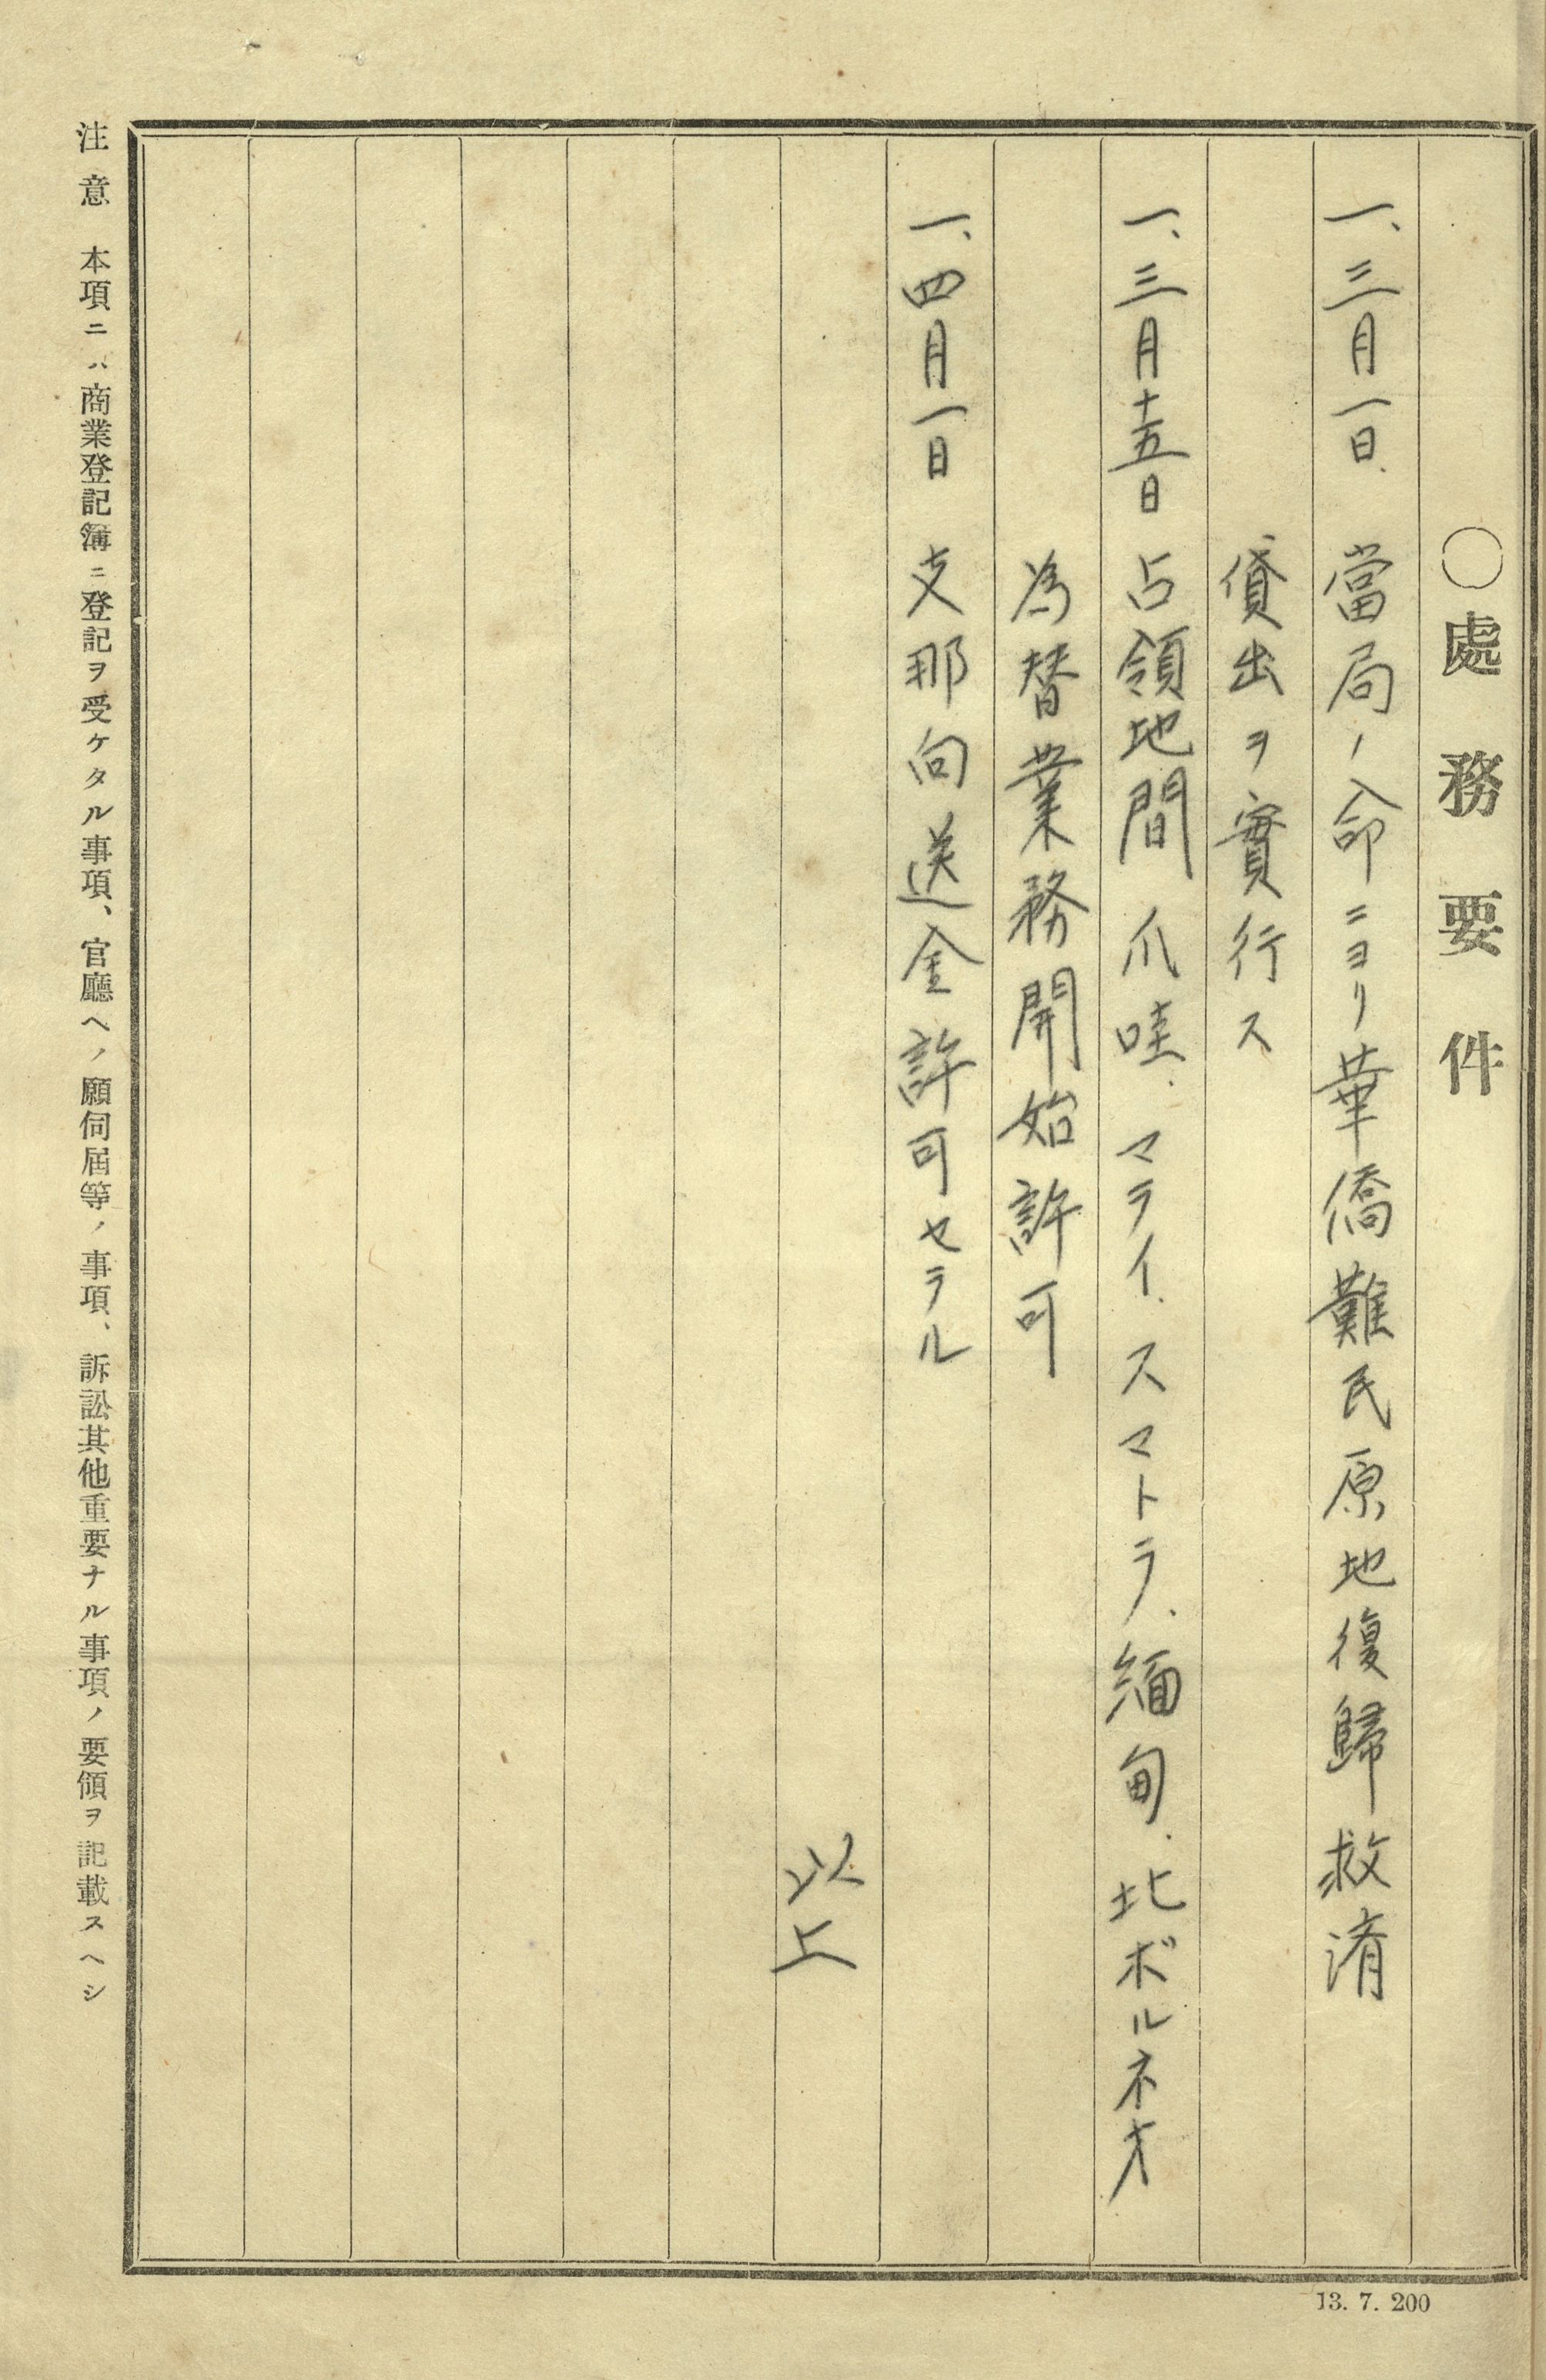 〇處務要件
一、三月一日、當局ノ命ニヨリ華僑難民原地復歸救済
貸出ヲ實行ス
一、三月十五日 占領地間 爪哇、マライ、スマトラ、緬甸、北ボルネオ
為替業務開始許可
一、四月一日 支那向送金許可セラル
以上
注意 本項ニハ商業登記簿ニ登記ヲ受ケタル事項、官廳ヘノ願伺屆等ノ事項、訴訟其他重要ナル事項ノ要領ヲ記載スヘシ
13. 7. 200